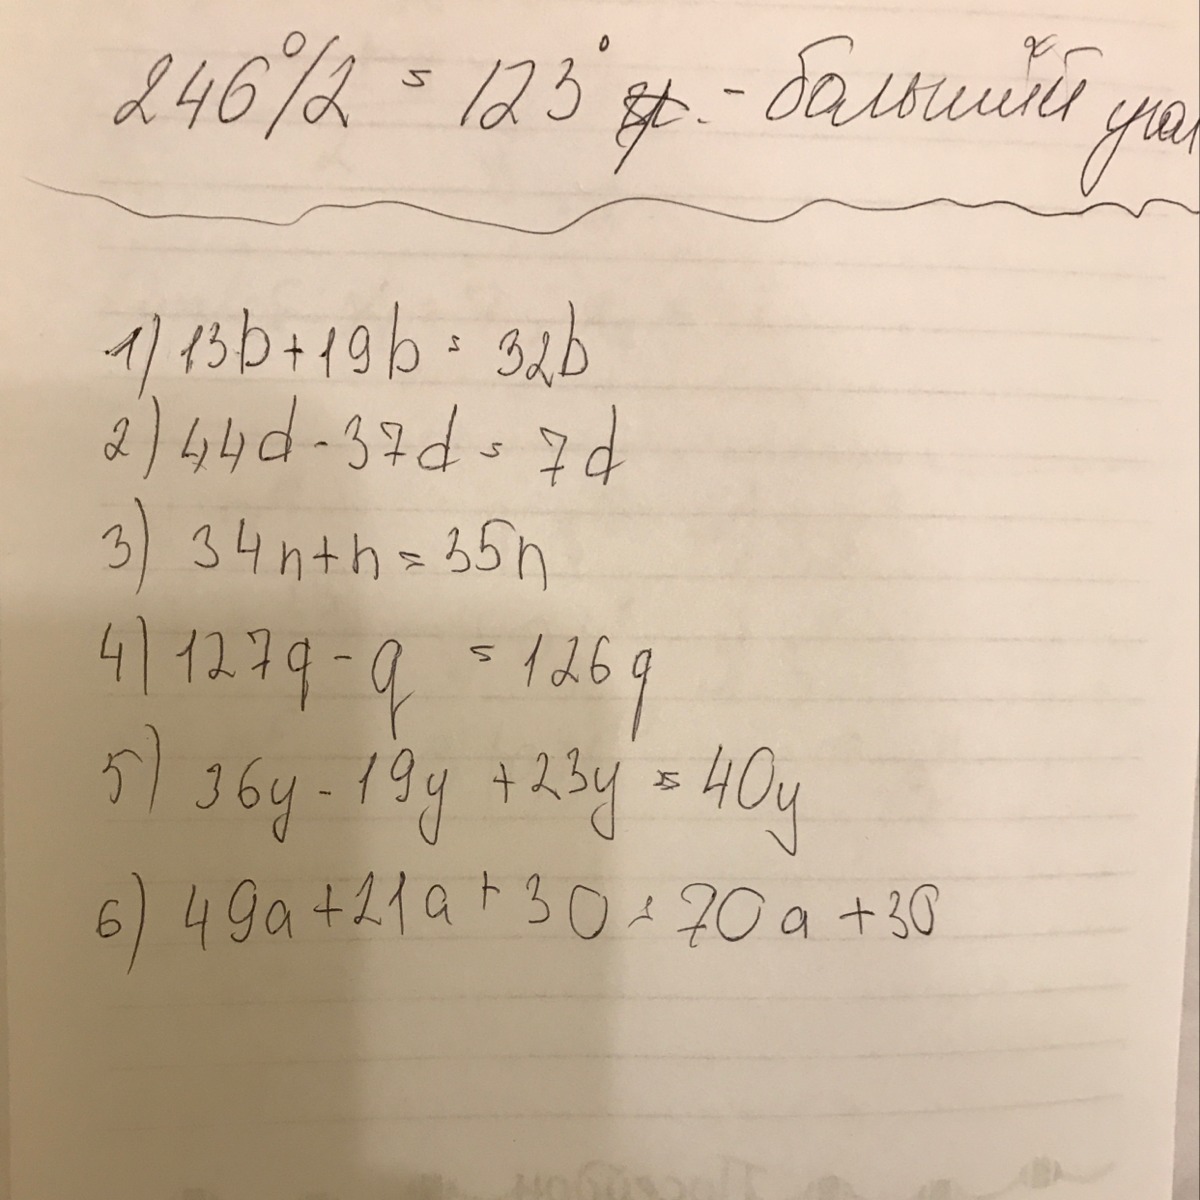 246°/2 = 123° - больший
1) 13b+19b = 32b
2) 44d - 37d = 7d
3) 34n+n = 35n
4) 127q - q = 126q
5) 36y - 19y + 23y = 40y
6) 49a+21a+30 = 70a+30